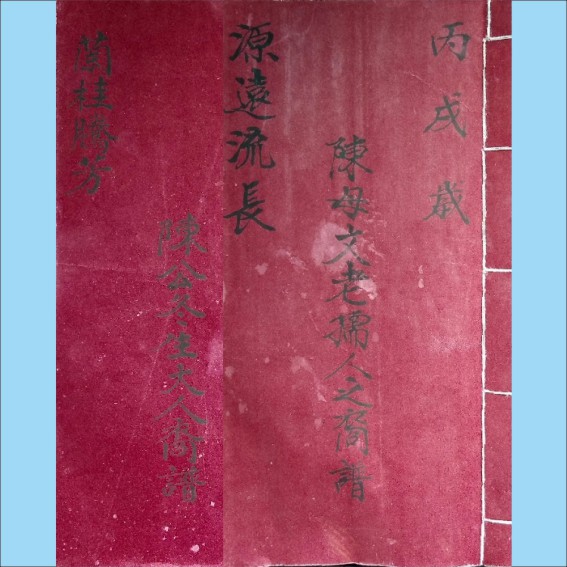 丙戌歲
陳母文老孺人之裔譜
源遠流長
陳公冬生大人裔譜
蘭桂騰芳